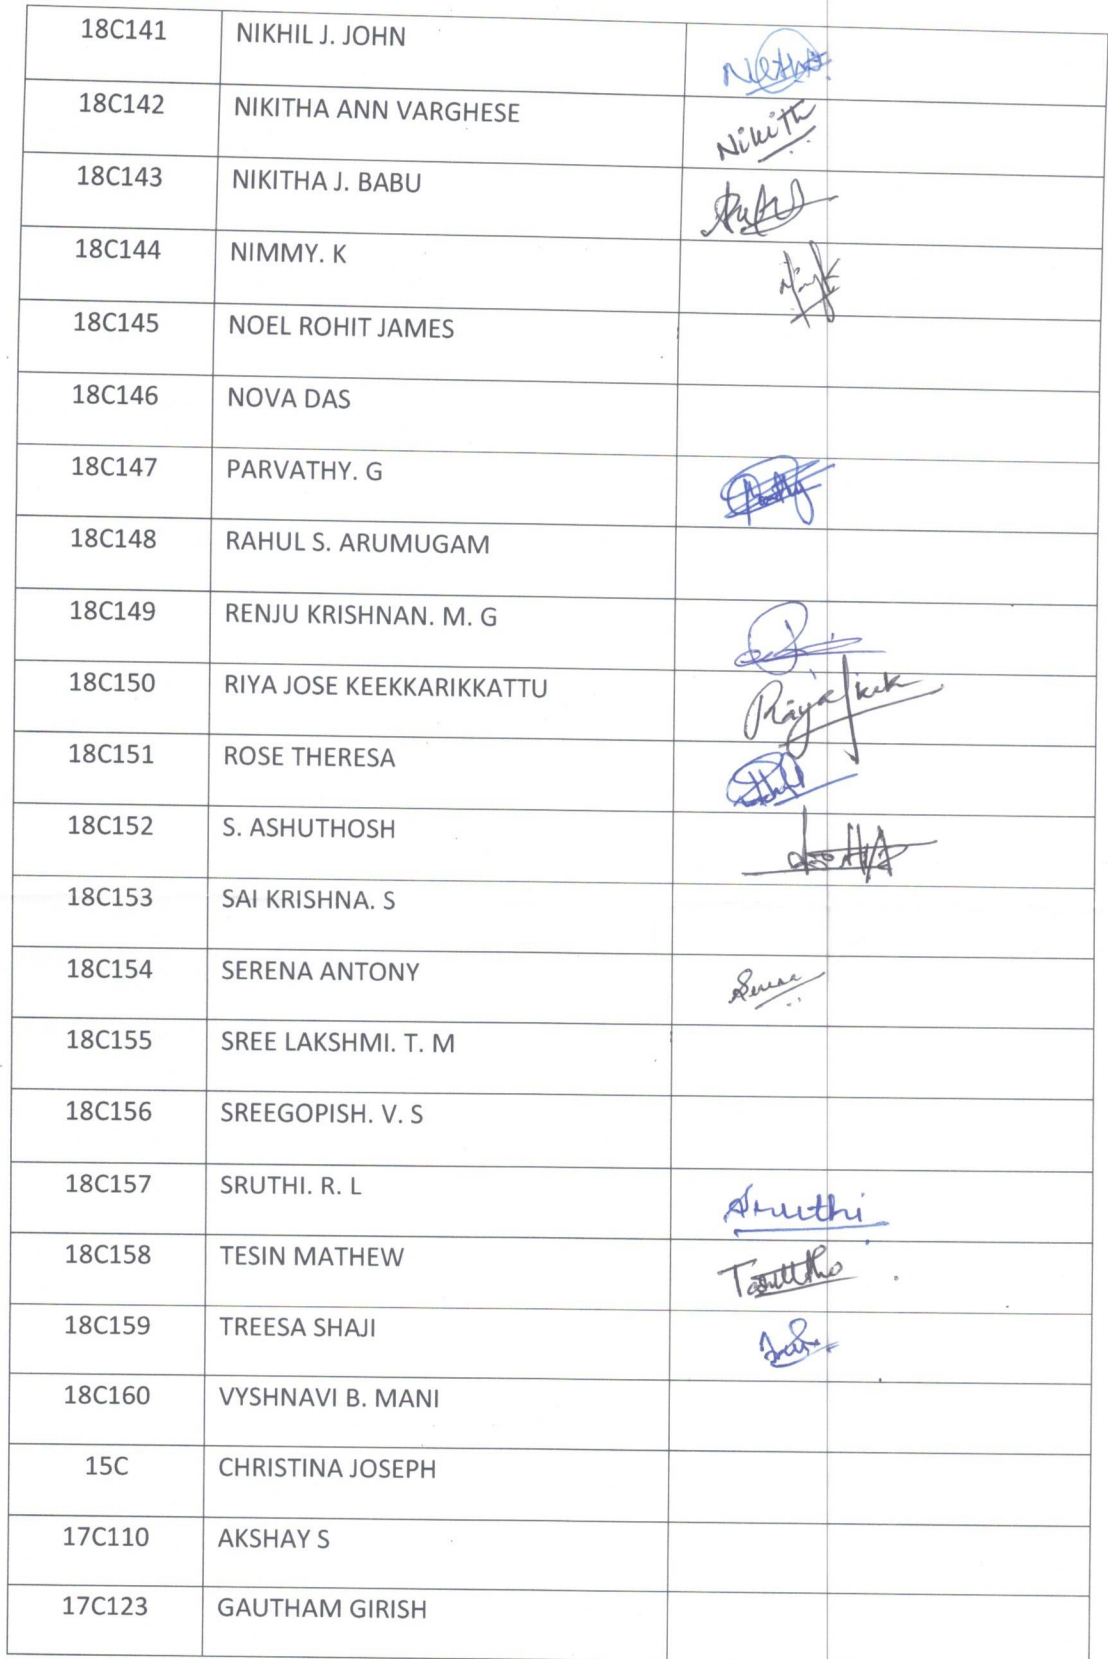 18C141 NIKHIL J. JOHN
18C142 NIKITHA ANN VARGHESE Nikith
18C143 NIKITHA J. BABU
18C144 NIMMY. K
18C145 NOEL ROHIT JAMES
18C146 NOVA DAS
18C147 PARVATHY. G
18C148 RAHUL S. ARUMUGAM
18C149 RENJU KRISHNAN. M. G
18C150 RIYA JOSE KEEKKARIKKATTU
18C151 ROSE THERESA
18C152 S. ASHUTHOSH
18C153 SAI KRISHNA. S
18C154 SERENA ANTONY
18C155 SREE LAKSHMI. T. M
18C156 SREEGOPISH. V. S
18C157 SRUTHI. R. L Sruthi
18C158 TESIN MATHEW
18C159 TREESA SHAJI
18C160 VYSHNAVI B. MANI
15C CHRISTINA JOSEPH
17C110 AKSHAY S
17C123 GAUTHAM GIRISH